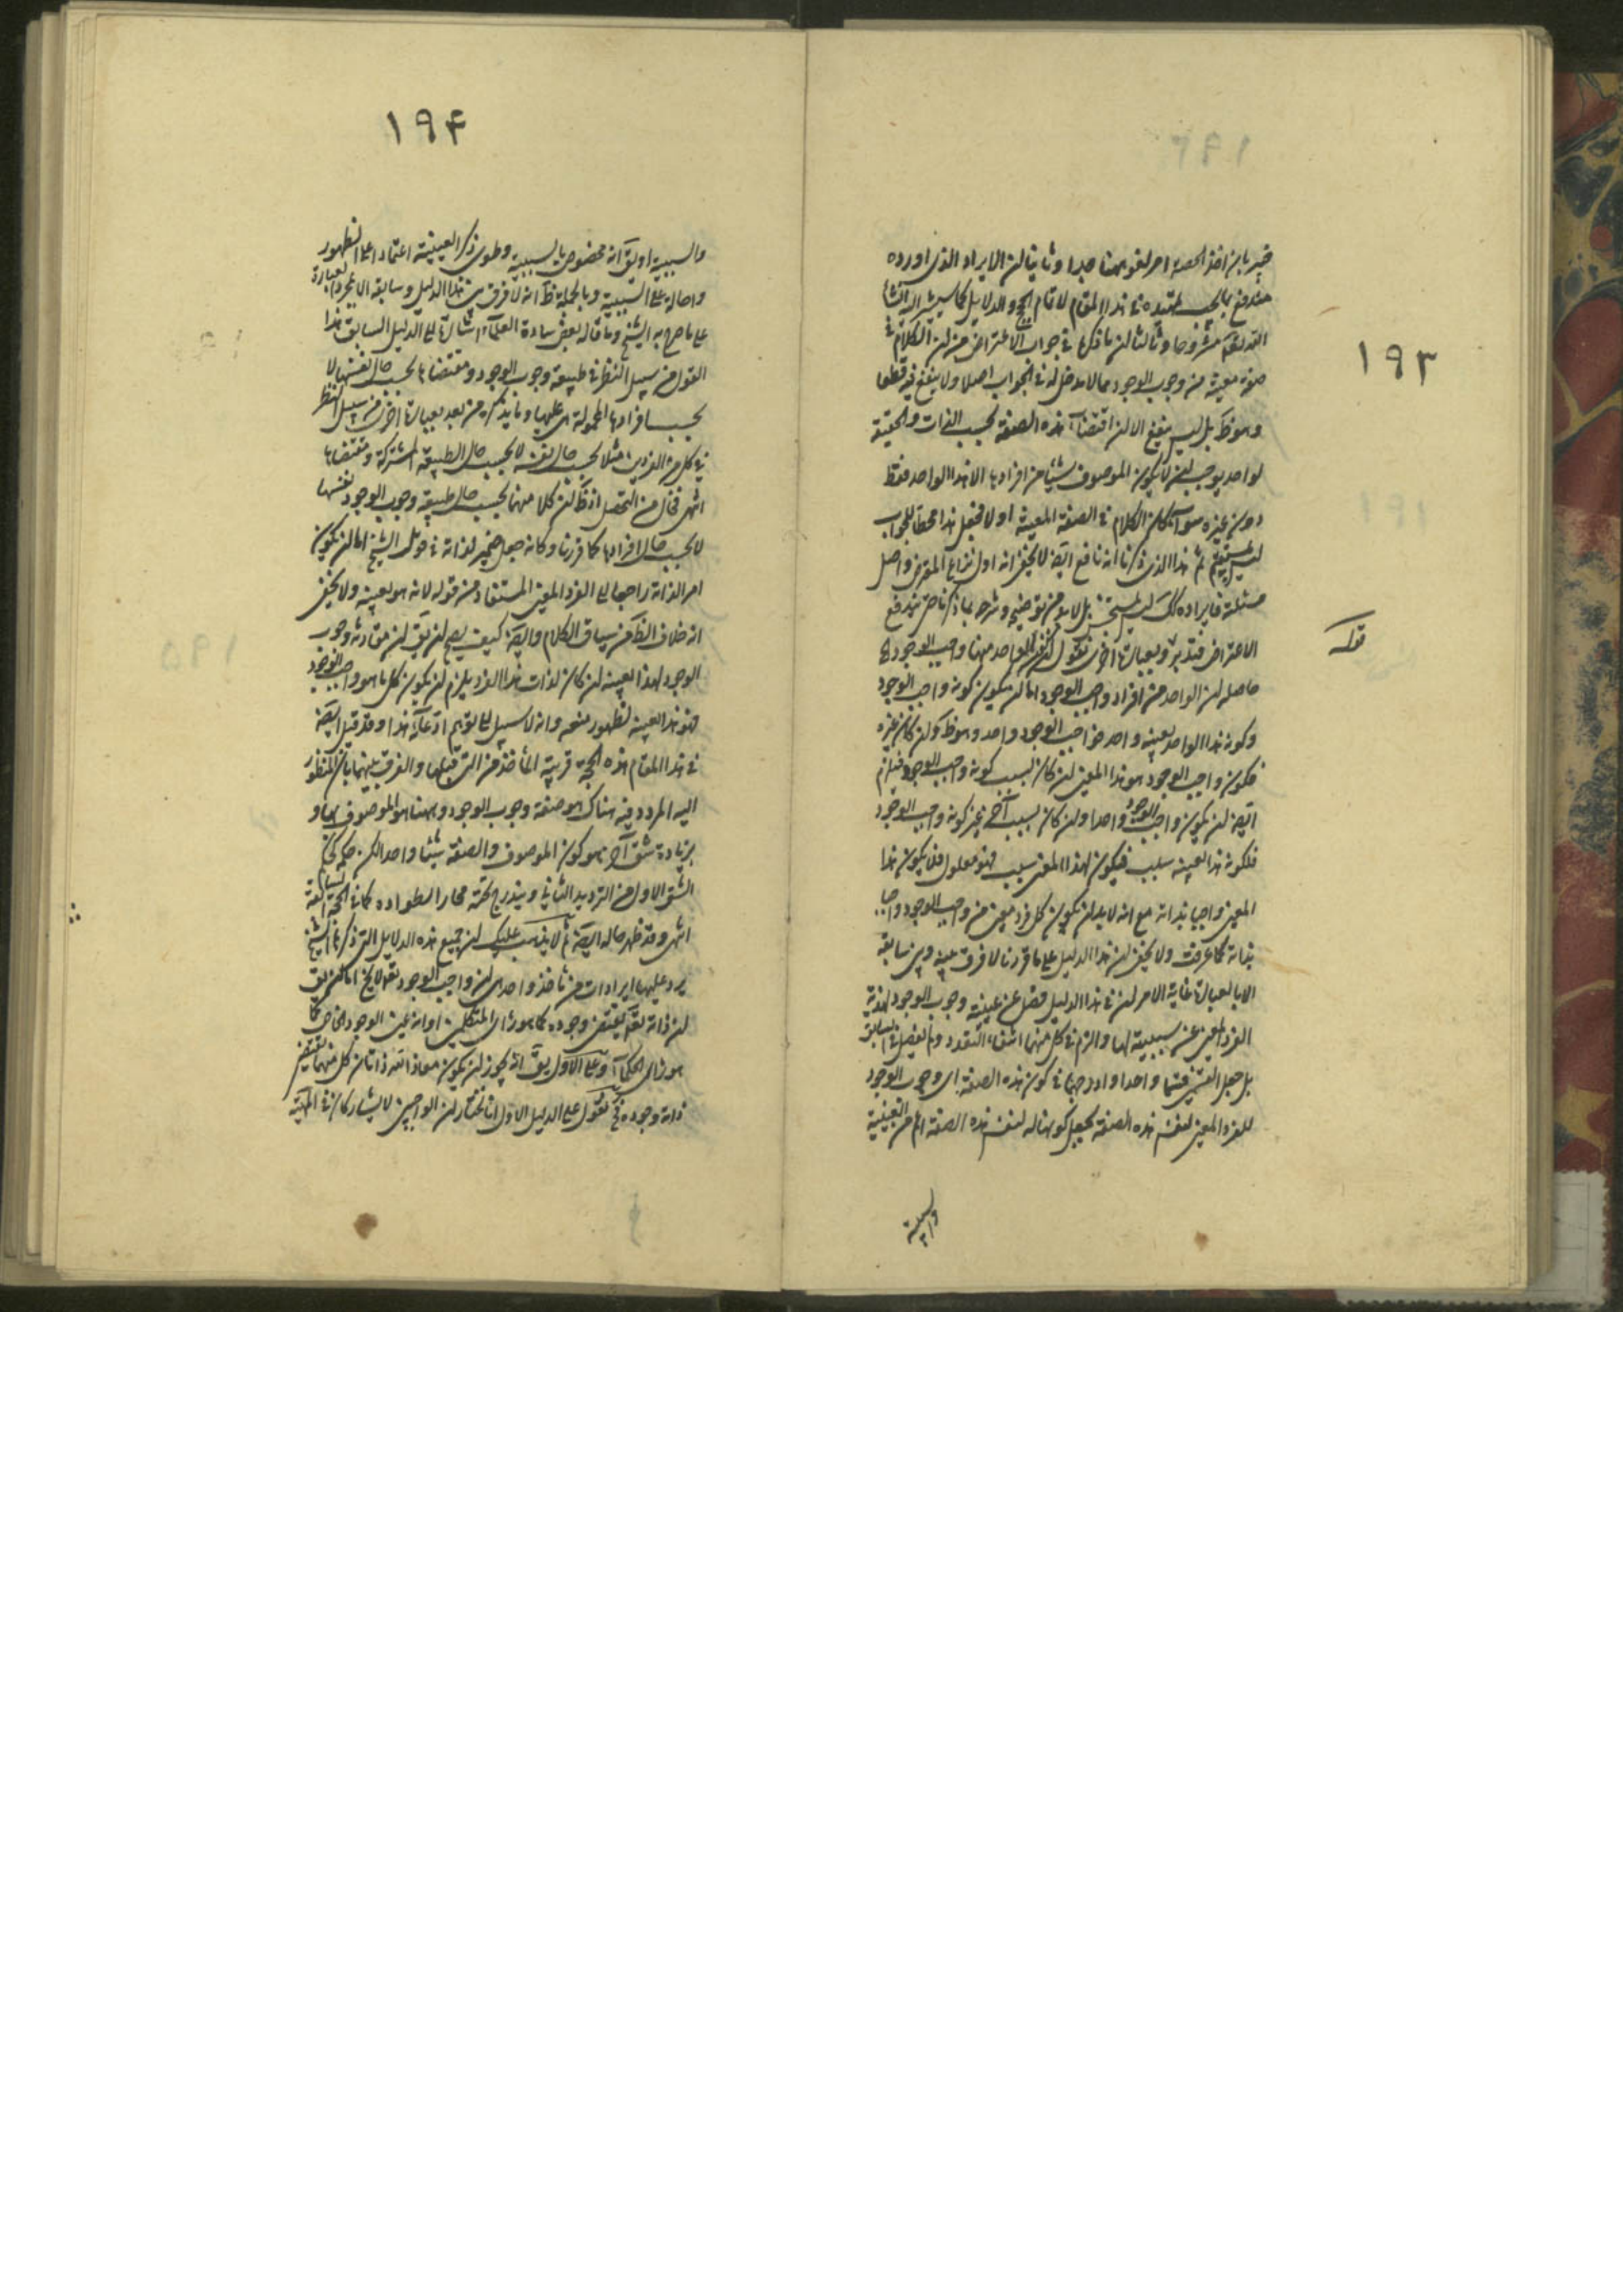 ١٩٣
خبير بان اخذ الحصر امر لغو ههنا جدا وثانيا لن الايراد الذي اورده
مندفع بما يجب في هذا المقام لاتمام الحجج والدلايل كما سيشير اليه ان شاء
الله تعالى مشروحا وثالثا لن ما ذكرها في جواب الاعتراض من لن الكلام في
صفة معينة من وجوب الوجود مما لا مدخل له في الجواب اصلا ولا ينفع فيه قطعا
وهو ظ بل ليس ينفع الا لن اقتضاء هذه الصفة بحسب الذات والحقيقة
لواحد يوجب لن لا يكون الموصوف بشيء من افرادها الا هذا الواحد فقط
دون غيره سواء كان الكلام في الصفة المعينة او لا فجعل هذا محط الجواب
ليس بمستقيم ثم هذا الذي ذكرنا انه نافع ايضا لا يخفى انه اول نزاع المعترض واصل
مسئلته فايراده كك ليس بمستحسن بل لا بد من توضيح وشرح بما ذكرنا حتى يندفع
الاعتراض فتدبر وبعبارة اخرى نقول
قوله
حاصله لن الواحد من افراد واجب الوجود اما لن يكون كونه واجب الوجود
وكونه هذا الواحد بعينه واحد فواجب الوجود واحد وهو ظ ولن كان غيره
فكون واجب الوجود هو هذا المعين لن كان بسبب كونه واجب الوجود فيلزم
ايضا لن يكون واجب الوجود واحدا ولن كان بسبب آخر غير كونه واجب الوجود
فلكونه هذا بعينه سبب فيكون لهذا المعين سبب فهو معلول فلا يكون هذا
المعين واجبا بذاته مع انه لا بد لن يكون كل فرد معين من واجب الوجود واجبا
بذاته كما عرفت ولا يخفى لن هذا الدليل على ما قررنا لا فرق بينه وبين سابقه
الا بالعبارة غاية الامر لن في هذا الدليل فصل عن عينية وجوب الوجود لهذية
الفرد المعين عن سببيته لها والزم في كل منهما انتفاء التعدد ولم يفصل في السابق
بل جعل الشقين قسما واحدا وادرجهما في كون هذه الصفة اي وجوب الوجود
للفرد المعين لنفس هذه الصفة بجعل كونها له لنفس هذه الصفة اعم من العينية
والسببية
١٩٤
والسببية او يق انه مخصوص بالسببية وطوى ذكر العينية اعتمادا على الظهور
واحالة على السببية وبالجملة ظ انه لا فرق بين هذا الدليل وسابقه الا بمجرد العبارة
على ما صرح به الشيخ وما قاله بعض سادة العلماء اشارة الى الدليل السابق هذا
القول من سبيل النظر في طبيعة وجوب الوجود ومقتضاها بحسب حال نفسها لا
بحسب افرادها المحمولة هي عليها وما يذكره من بعد بعبارة اخرى من سبيل النظر
في كل من الفردين مثلا بحسب حال نفسه لا بحسب حال الطبيعة المشتركة ومقتضاها
انتهى فخال من التحصل اذ ظ لن كلا منهما بحسب حال طبيعة وجوب الوجود نفسها
لا بحسب حال افرادها كما قررنا وكانه جعل ضمير لذاته في قول الشيخ اما لن يكون
امر الذاته راجعا الى الفرد المعين المستفاد من قوله لانه هو بعينه ولا يخفى
انه خلاف الظ من سياق الكلام وايضا كيف يصح لن يق لن مقارنة وجوب
الوجود لهذا بعينه لن كان لذات هذا الفرد يلزم لن يكون كل ما هو واجب الوجود
فهو هذا بعينه لظهور منعه وانه لا سبيل الى توهم ادعائه هذا وقد قيل ايضا
في هذا المقام هذه الحجة قريبة المأخذ من التي قبلها والفرق بينهما بان المنظور
اليه المردد فيه هناك هو صفة وجوب الوجود وههنا هو الموصوف بها و
بزيادة شق آخر هو كون الموصوف والصفة شيئا واحدا لكن حكمه كحكم
الشق الاول من الترديد الثاني ويندرج تحته كما في الحجة السابقة
انتهى وقد ظهر حاله ايضا ثم لا يذهب عليك لن جميع هذه الدلايل التي ذكرها الشيخ
يرد عليها ايرادات من مأخذ واحد هي لن واجب الوجود تعالى لا يخ اما لن يق
لن ذاته تعالى يقتضي وجوده كما هو رأي المتكلمين او انه عين الوجود الخاص كما
هو رأي الحكماء وعلى الاول يق انه يجوز لن يكون معاذ الله ذاتان كل منهما يقتضي
ذاته وجوده فح نقول على الدليل الاول انا نختار لن الواجبين لا يشاركان في المهية